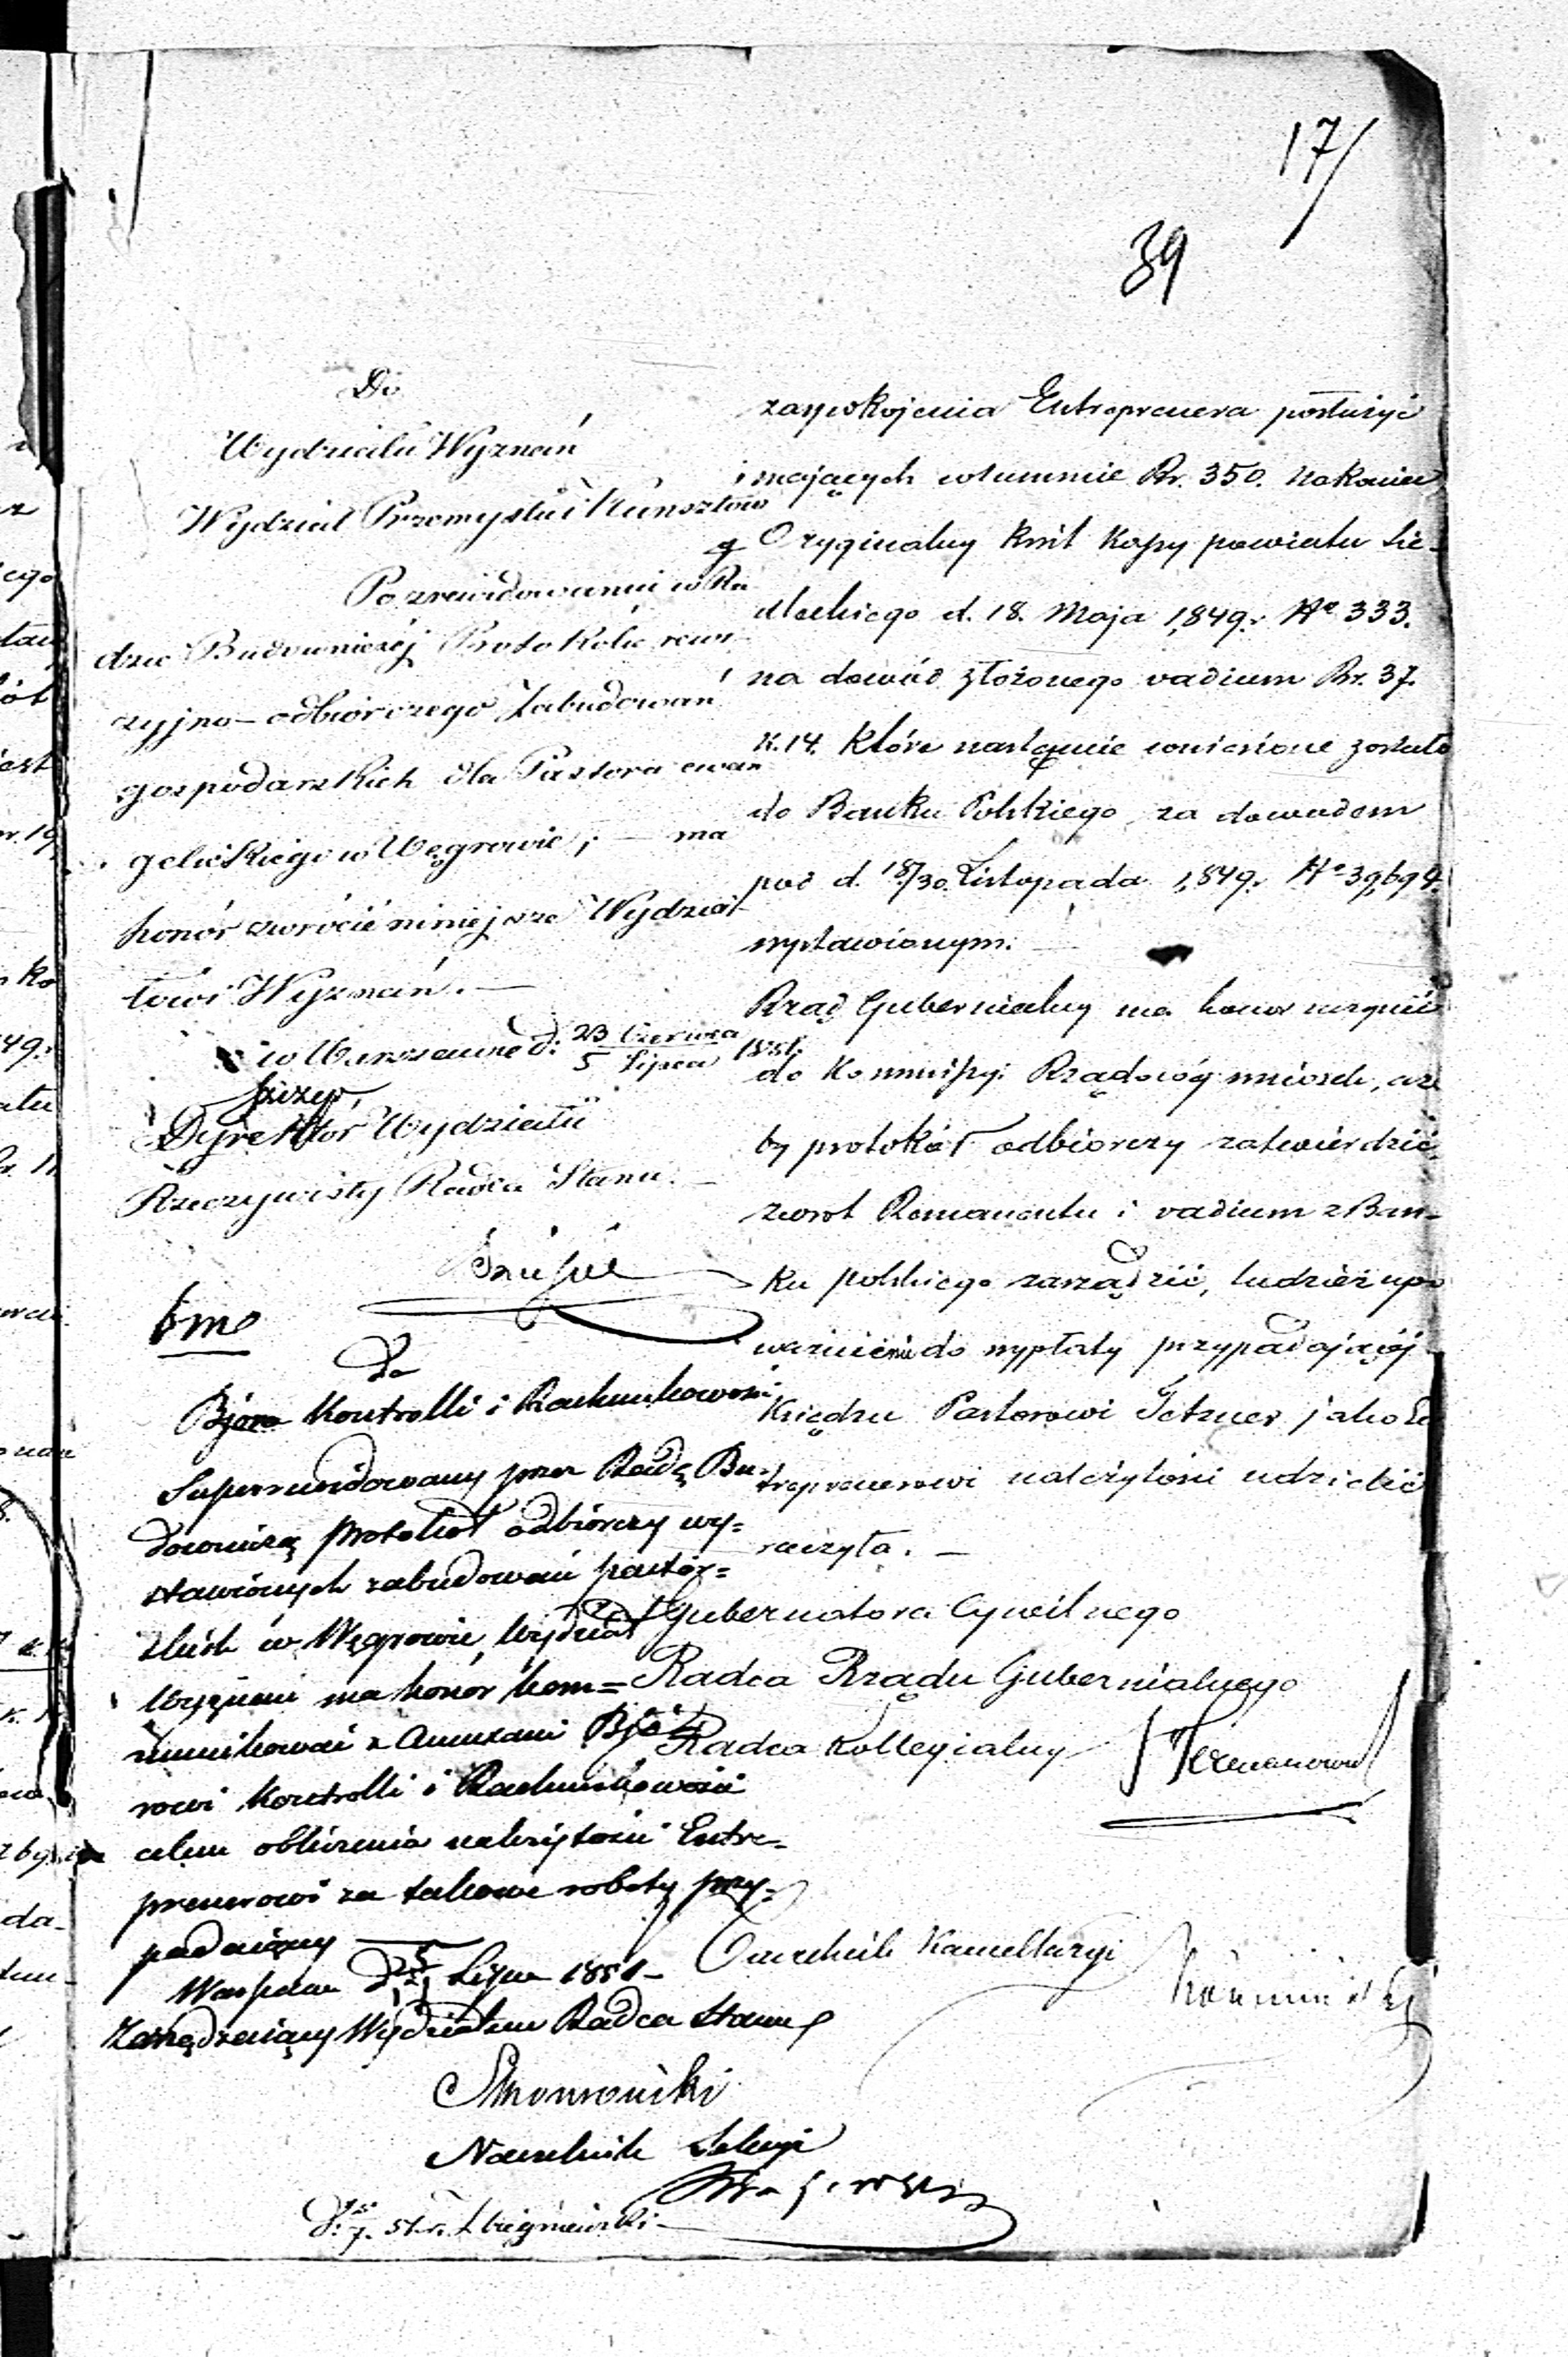 17/
39
Do
Wydziału Wyznań
Wydział Przemysłu i Kunsztów
Po zrewidowaniu w Ra
dzie Budowniczéj Protokołu rewi-
zyjno-odbiorczego Zabudowań
gospodarskich dla Pastora ewan
gelickiego w Węgrowie; — ma
honór zwrócić niniejsze Wydzia-
łowi Wyznań. —
w Warszawie d: 23 Czerwca / 5 Lipca 1851.
Dyrektor Wydziału
Rzeczywisty Radca Stanu. —
Do
Bjóra Kontrolli i Rachunkowości
Superrewidowany przez Radę Bu-
downiczą protokół odbiorczy wy=
stawionych zabudowań pastor=
skich w Węgrowie, Wydział
Wyznań ma honór kom=
munikować z Annexami Bjó
rowi Kontrolli i Rachunkowości
celem obliczenia należytości Entre-
prenerowi za takowe roboty przy-
padaiącey
Lipca 1851 -
Zarządzaiący Wydziałem Radca Stanu
Naczelnik Sekcyi
zaspokojenia Entreprenera posłużyć
mających w summie Rr. 350. nakoniec
Oryginalny kwit Kassy powiatu Sie-
dleckiego d. 18. Maja 1,849. r. No 333.
na dowód złożonego vadium Rr. 37.
k. 14. które następnie wniesione zostało
do Banku Polskiego, za dowodem
pod d. 18/30. Listopada 1,849. r. No 39,694.
wystawionym. —
Rząd Gubernialny ma honor wnieść
do Kommissyi Rządowéj wniosek, aże
by protokół odbiorczy zatwierdzić,
zwrot Remanentu i vadium z Ban-
ku polskiego zarządzić, tudzież upo
ważnienie do wypłaty przypadającéj
Księdzu Pastorowi Jetzner jako En
treprenerowi należytości udzielić
raczyła. —
Za Gubernatora Cywilnego
Radca Rządu Gubernialnego
Radca Kollegialny
Naczelnik Kancellaryi